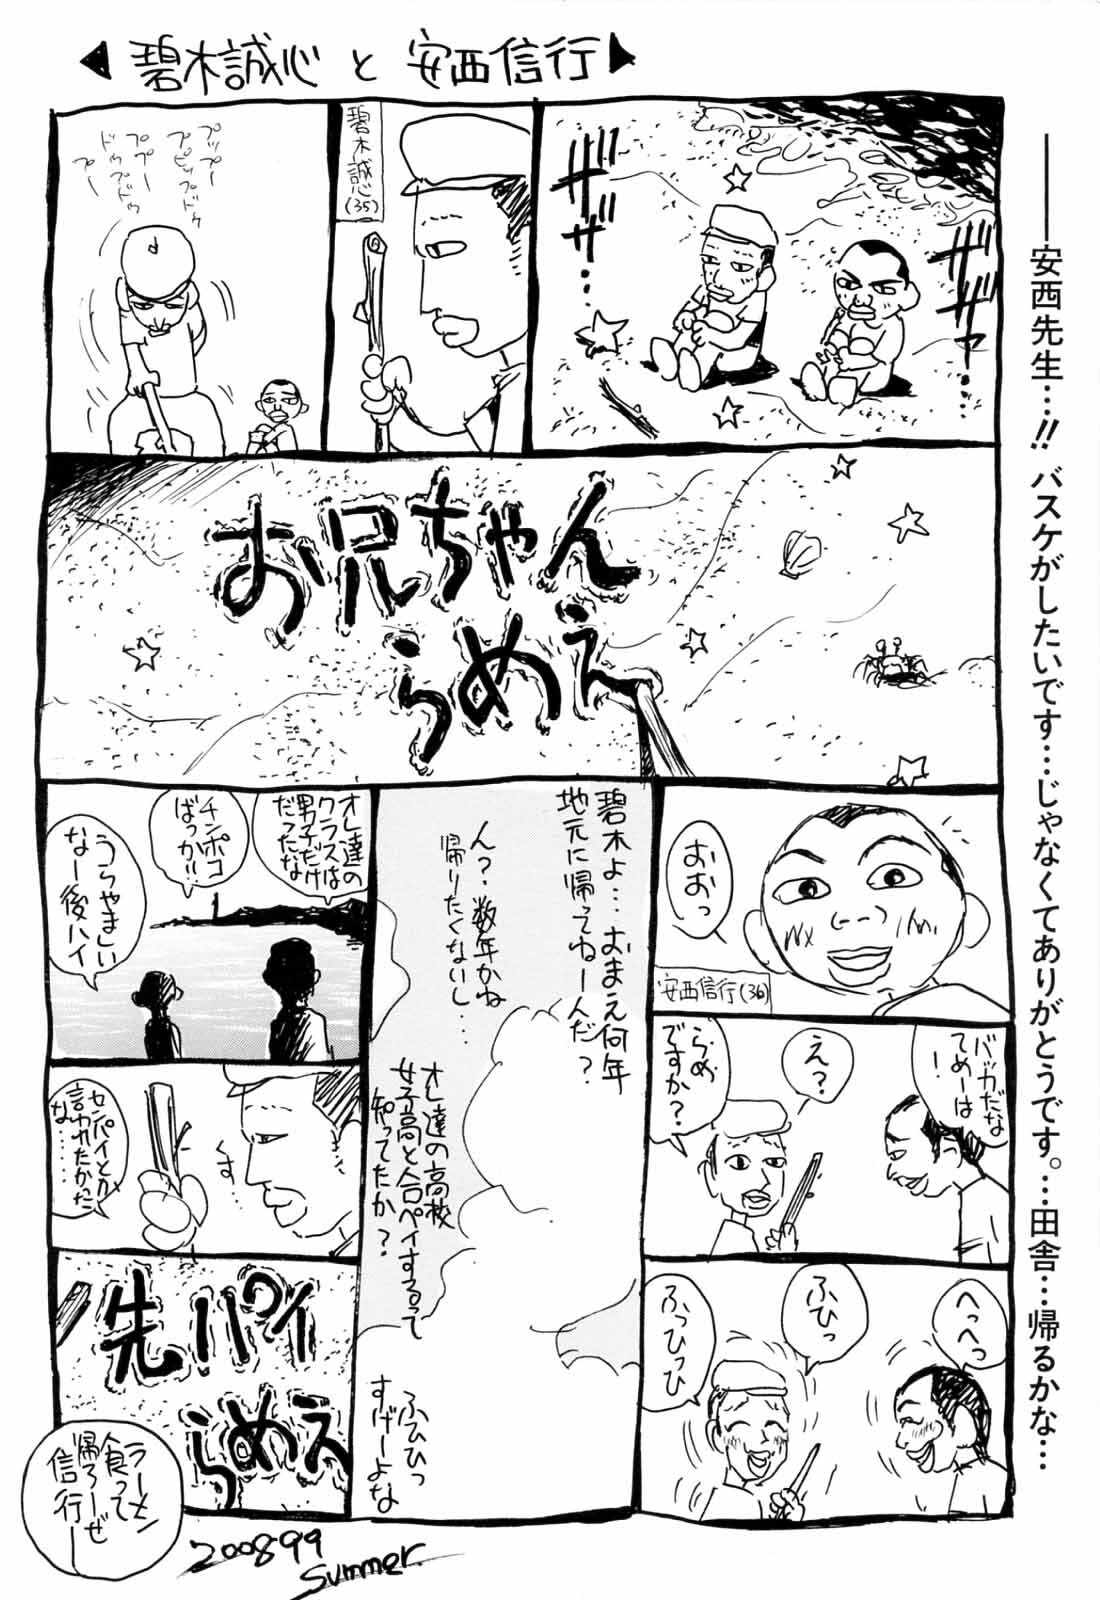 碧木誠心と安西信行
安西先生…!! バスケがしたいです…じゃなくてありがとうです。…田舎…帰るかな…
ザザザ…
ザザァ…
碧木誠心(35)
プップー
プピップドゥ
ププー
ドゥプドゥ
プー
お兄ちゃん
らめえ
おおっ
安西信行(36)
バッカだな
てめーは
!
え?
らめ
ですか?
へっへっ
ふひっ
ふっひっひ
碧木よ…おまえ何年
地元に帰ってねーんだ?
ん?数年かね
帰りたくないし…
オレ達の高校
女子高と合ペイするって
知ってたか?
ふひひっ
すげーよな
オレ達の
クラスは
男子だけ
だったな
チンポコ
ばっか!!
うらやましい
なー後ハイ
す
センパイとか
言われたかった
な……
先パイ
らめえ
ラーメン
食って
帰ろーぜ
信行ー
200899
Summer.